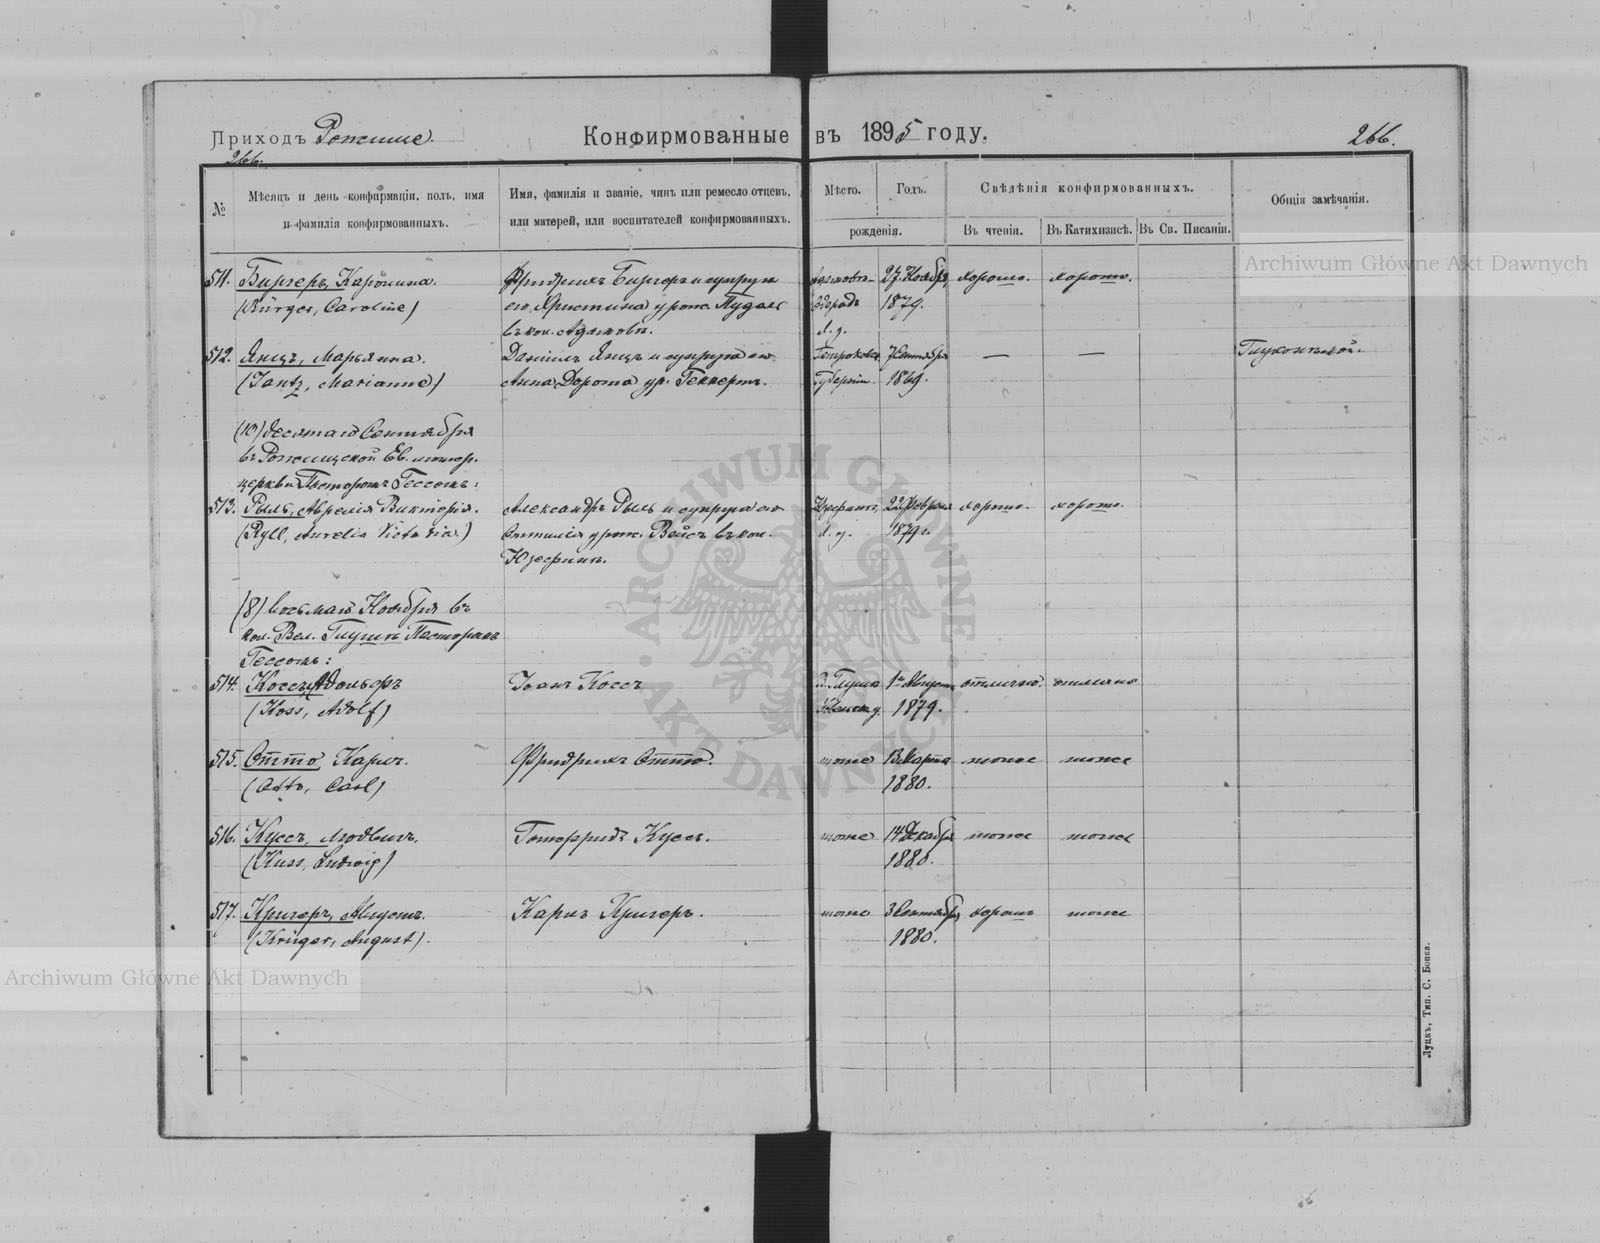 Приходъ Рожище.
Конфирмованные въ 1895 году.
266.
266.
№
Мѣсяцъ и день конфирмаціи, полъ, имя
и фамилія конфирмованныхъ.
Имя, фамилія и званіе, чинъ или ремесло отцевъ,
или матерей, или воспитателей конфирмованныхъ.
Мѣсто.
Годъ.
рожденія.
Свѣдѣнія конфирмованныхъ.
Въ чтеніи.
Въ Катихизисѣ.
Въ Св. Писаніи.
Общія замѣчанія.
511. Биргеръ, Каролина.
(Bürger, Caroline)
Фридрихъ Биргеръ и супруга
его Христина урож.
въ кол. Адамовъ.
27. Ноября
1879.
хорошо.
хорошо.
512. Янцъ, Марьянна.
(Jantz, Marianne)
Даніилъ Янцъ и супруга его
Анна Дорота ур. Геккертъ.
Петроковск.
Губерніи.
7 Сентября
1869.
—
—
Глухонѣмой.
(10) десятаго Сентября
въ Рожищской Ев. лютер.
церкви Пасторомъ Гессомъ:
513. Рылъ, Аврелія Викторія.
(Ryll, Aurelia Victoria.)
Александръ Рылъ и супруга его
Оттилія урож. Вейсъ въ кол.
Юзефинъ.
Юзефинъ,
22 Февраля
1879.
хорошо.
хорошо.
(8) восьмаго Ноября въ
кол. Вел. Глушъ Пасторомъ
Гессомъ:
514. Коссъ, Адольфъ
(Koss, Adolf)
Іоанъ Коссъ
1го Августа
1879.
отлично.
отлично
515. Отто, Карлъ.
(Otto, Carl)
Фридрихъ Отто.
тоже
13 Марта
1880.
тоже
тоже
516. Куссъ, Людвигъ.
(Kuss, Ludwig)
Готфридъ Куссъ.
тоже
14 Декабря
1880.
тоже
тоже
517. Кригеръ, Августъ.
(Krüger, August).
Карлъ Кригеръ.
тоже
3 Сентября
1880.
хорошо
тоже
Луцкъ, Тип. С. Бонка.
Archiwum Główne Akt Dawnych
Archiwum Główne Akt Dawnych
ARCHIWUM GŁÓWNE AKT DAWNYCH